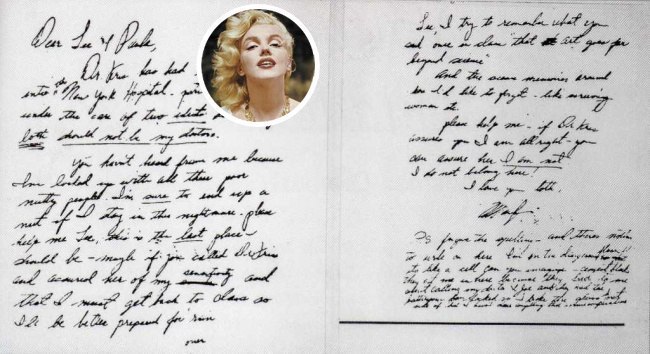 Dear Lee & Paula,
Dr Kris has had
into the New York Hospital -
under the care of two idiots
both should not be my doctors.
You havn't heard from me because
Im locked up with all these poor
nutty people. I'm sure to end up a
nut if I stay in this nightmare - please
help me Lee, this is the last place I
should be - maybe if you called Dr Kris
and assured her of my sensitivity and
that I must get back to class so
I'll be better prepared for "rain"
over
Lee, I try to remember what you
said once in class "that art goes far
beyond science"
And the memories around
me I'd like to forget - like
woman etc.
please help me - if Dr Kris
assures you I am all right - you
can assure her I am not
I do not belong here!
I love you both.
Marilyn
P.S. forgive the spelling - and theres nothing
to write on here. Im on the dangerous floor!!
its like a cell can you - cement blocks
they put me in here because they lied to me
about calling my doctor & Joe and they had the
bathroom door locked so I broke the glass and
outside of that I havnt done anything that is uncooperative